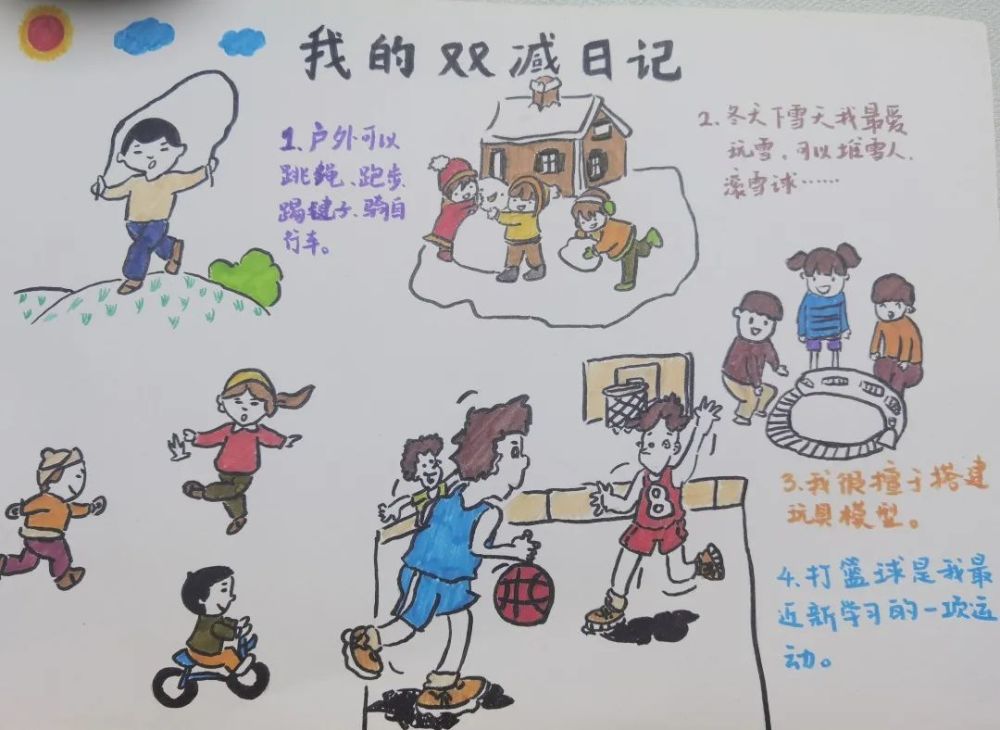 我的双减日记
1. 户外可以
跳绳、跑步、
踢毽子、骑自
行车。
2. 冬天下雪天我最爱
玩雪，可以堆雪人，
滚雪球……
3. 我很擅于搭建
玩具模型。
4. 打篮球是我最
近新学习的一项运
动。
8